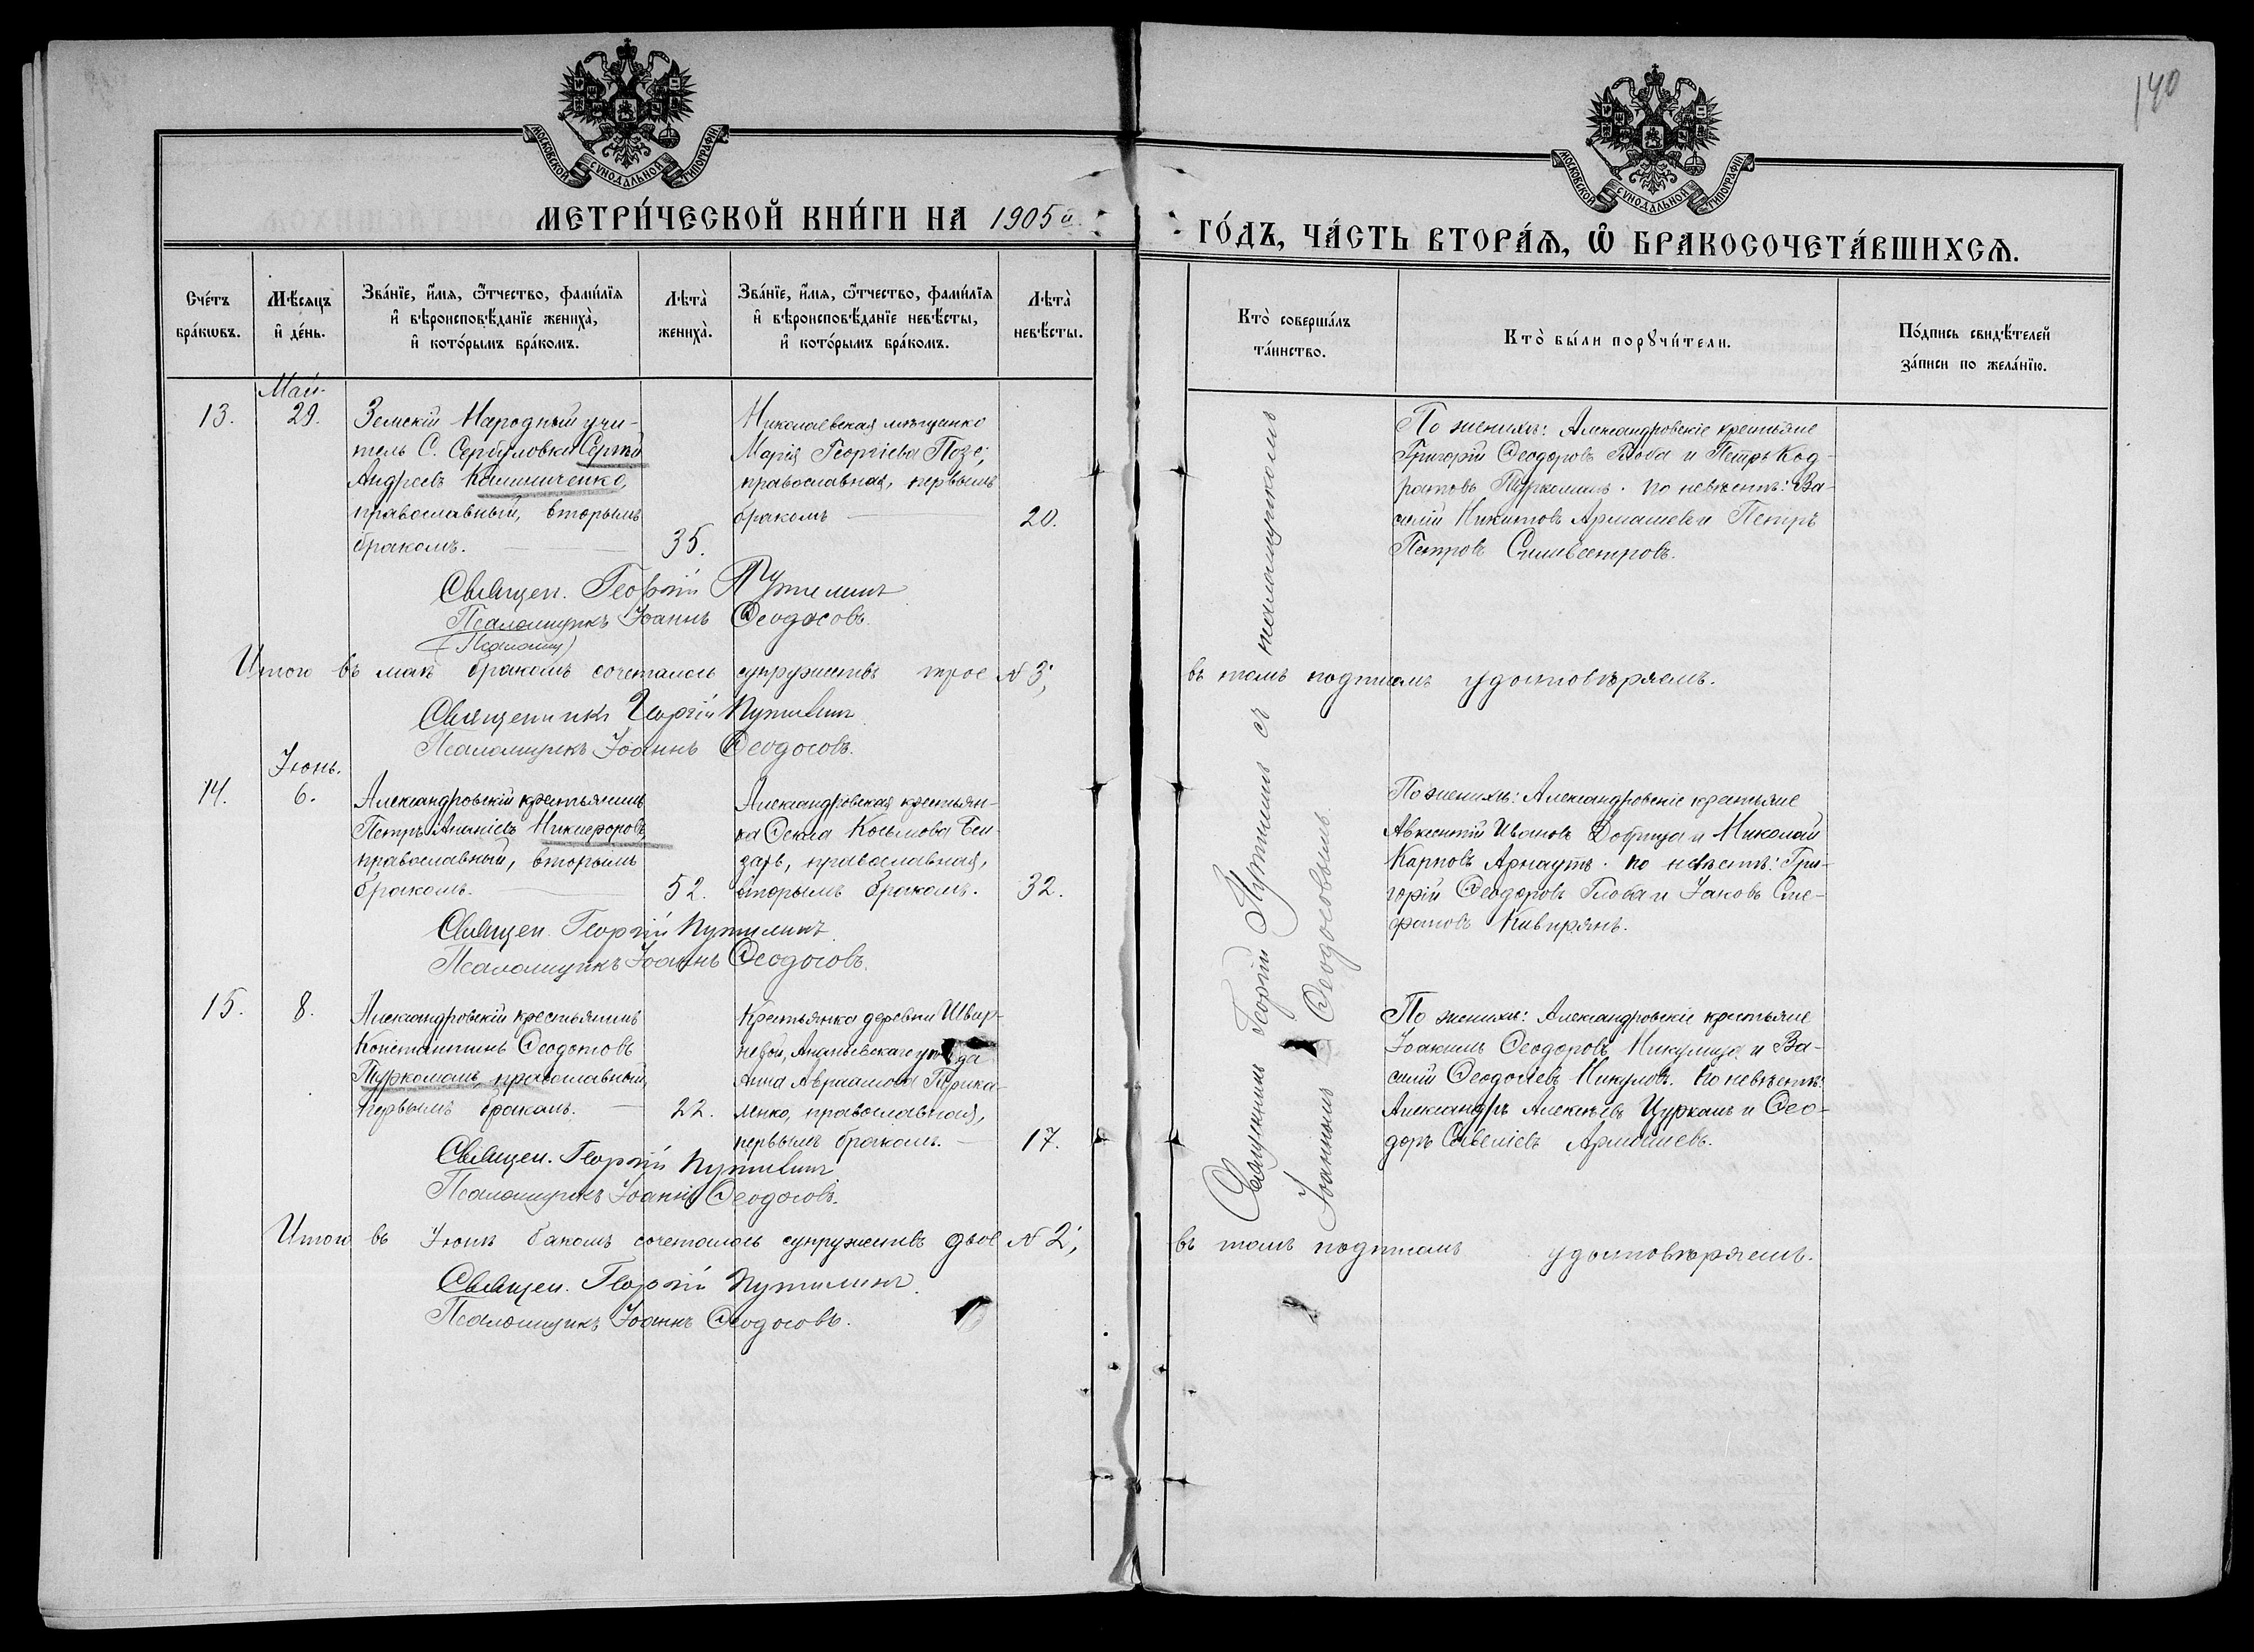 140
МОСКОВСКОЙ СѴНОДАЛЬНОЙ ТИПОГРАФІИ
МОСКОВСКОЙ СѴНОДАЛЬНОЙ ТИПОГРАФІИ
МЕТРИ́ЧЕСКОЙ КНИ́ГИ НА 1905 й
ГО́ДЪ, ЧА́СТЬ ВТОРА́Ѧ, Ѽ БРАКОСОЧЕТА́ВШИХСѦ.
Сче́тъ
бра́кѡвъ.
Мѣ́сяцъ
и҆ де́нь.
Зва́нїе, и҆́мѧ, ѻ҆́тчество, фами́лїѧ
и҆ вѣроисповѣ́данїе жениха̀,
и҆ кото́рымъ бра́комъ.
Лѣта̀
жениха̀.
Зва́нїе, и҆́мѧ, ѻ҆́тчество, фами́лїѧ
и҆ вѣроисповѣ́данїе невѣ́сты,
и҆ кото́рымъ бра́комъ.
Лѣта̀
невѣ́сты.
Кто̀ соверша́лъ
та́инство.
Кто̀ бы́ли порꙋчи́тели.
По́дпись свидѣ́телей
за́писи по жела́нїю.
Май.
13.
29.
Земскій Народный учи-
тель С. Сербуловки Сергѣй
Андреевъ Калиниченко,
православный, вторымъ
бракомъ.
35.
Николаевская мѣщанка
Марія Георгіева Позе,
православная, первымъ
бракомъ
20.
По женихѣ: Александровскіе крестьяне
Григорій Ѳеодоровъ Глоба и Петръ Код-
ратовъ Туркоманъ. По невѣстѣ: Ва-
силій Никитовъ Армашевъ и Петръ
Петровъ Силивестровъ.
Священ. Георгій Путилинъ
Псаломщикъ Іоаннъ Ѳеодосовъ.
(Псаломщ)
Итого въ маѣ бракомъ сочеталось супружествъ трое № 3,
въ томъ подписомъ удостовѣряемъ.
Священникъ Георгій Путилинъ
Псаломщикъ Іоаннъ Ѳеодосовъ.
Іюнь.
14.
6.
Александровскій крестьянинъ
Петръ Ананіевъ Никифоровъ,
православный, вторымъ
бракомъ.
52.
Александровская крестьян-
ка Ѳекла Косьмова Бен-
даръ, православная,
вторымъ бракомъ.
32.
По женихѣ: Александровскіе крестьяне
Авксентій Ивановъ Добрица и Николай
Карповъ Арнаутъ. По невѣстѣ: Гри-
горій Ѳеодоровъ Глоба и Іаковъ Сте-
фановъ Кивирянъ.
Священ. Георгій Путилинъ
Псаломщикъ Іоаннъ Ѳеодосовъ.
15.
8.
Александровскій крестьянинъ
Константинъ Ѳеодотовъ
Туркоманъ, православный,
первымъ бракомъ.
22.
Крестьянка деревни
Ананьевскаго уѣзда
Анна Авраамова
ленко, православная,
первымъ бракомъ.
17.
По женихѣ: Александровскіе крестьяне
Іоакимъ Ѳеодоровъ Никулица и Ва-
силій Ѳеодосіевъ Никуловъ. По невѣстѣ:
Александръ Алексѣевъ Цурканъ и Ѳео-
доръ Савеліевъ Армашевъ.
Священ. Георгій Путилинъ
Псаломщикъ Іоаннъ Ѳеодосовъ.
Итого въ Іюнѣ бакомъ сочеталось супружествъ двое № 2,
въ томъ подписомъ удостовѣряемъ.
Священ. Георгій Путилинъ.
Псаломщикъ Іоаннъ Ѳеодосовъ.
Священникъ Георгій Путилинъ съ псаломщикомъ
Іоанномъ Ѳеодосовымъ